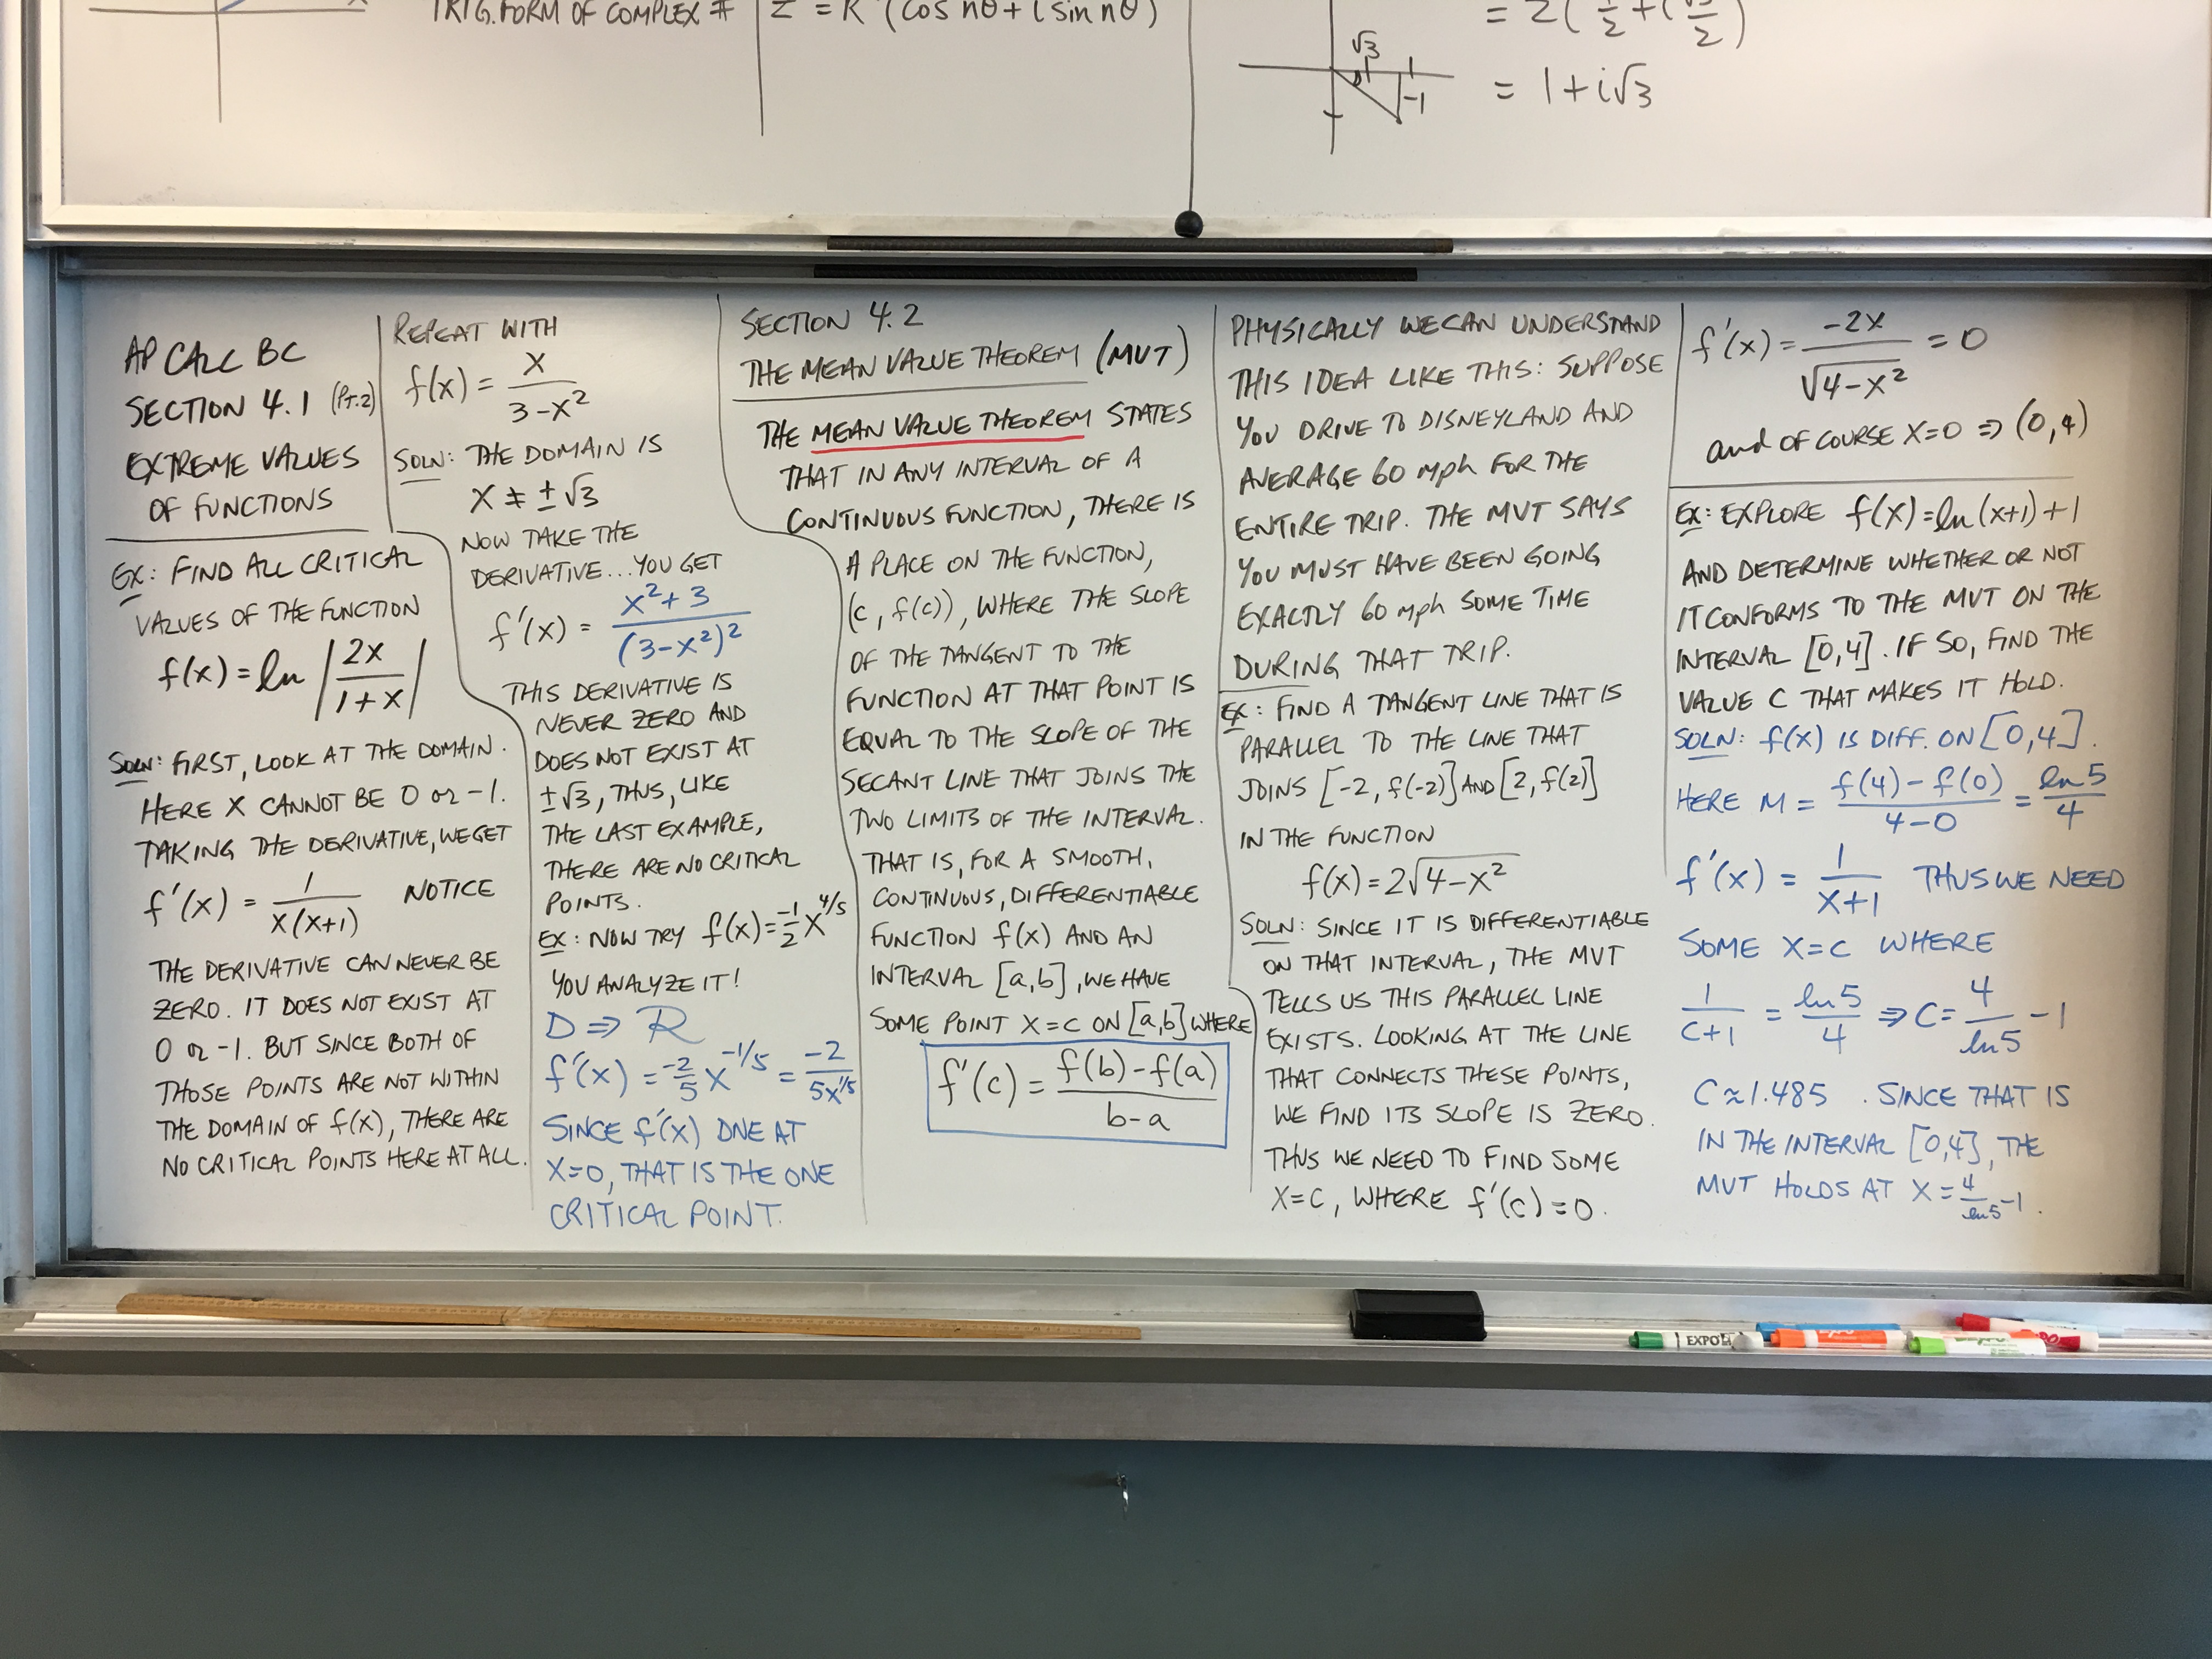 TRIG. FORM OF COMPLEX #
Z = R (cos nθ + i sin nθ)
√3
1
-1
= 2(1/2 + i√3/2)
= 1 + i√3
AP CALC BC
SECTION 4.1 (PT. 2)
EXTREME VALUES
OF FUNCTIONS
EX: FIND ALL CRITICAL
VALUES OF THE FUNCTION
f(x) = ln |2x/(1+x)|
SOLN: FIRST, LOOK AT THE DOMAIN.
HERE X CANNOT BE 0 or -1.
TAKING THE DERIVATIVE, WE GET
f'(x) = 1/(x(x+1)) NOTICE
THE DERIVATIVE CAN NEVER BE
ZERO. IT DOES NOT EXIST AT
0 or -1. BUT SINCE BOTH OF
THOSE POINTS ARE NOT WITHIN
THE DOMAIN OF f(x), THERE ARE
NO CRITICAL POINTS HERE AT ALL.
REPEAT WITH
f(x) = x/(3-x²)
SOLN: THE DOMAIN IS
X ≠ ±√3
NOW TAKE THE
DERIVATIVE... YOU GET
f'(x) = (x²+3)/(3-x²)²
THIS DERIVATIVE IS
NEVER ZERO AND
DOES NOT EXIST AT
±√3, THUS, LIKE
THE LAST EXAMPLE,
THERE ARE NO CRITICAL
POINTS.
EX: NOW TRY f(x) = -1/2 x^4/5
YOU ANALYZE IT!
D ⇒ R
f'(x) = -2/5 x^-1/5 = -2/(5x^1/5)
SINCE f'(x) DNE AT
X=0, THAT IS THE ONE
CRITICAL POINT.
SECTION 4.2
THE MEAN VALUE THEOREM (MVT)
THE MEAN VALUE THEOREM STATES
THAT IN ANY INTERVAL OF A
CONTINUOUS FUNCTION, THERE IS
A PLACE ON THE FUNCTION,
(c, f(c)), WHERE THE SLOPE
OF THE TANGENT TO THE
FUNCTION AT THAT POINT IS
EQUAL TO THE SLOPE OF THE
SECANT LINE THAT JOINS THE
TWO LIMITS OF THE INTERVAL.
THAT IS, FOR A SMOOTH,
CONTINUOUS, DIFFERENTIABLE
FUNCTION f(x) AND AN
INTERVAL [a,b], WE HAVE
SOME POINT X=C ON [a,b] WHERE
f'(c) = (f(b)-f(a))/(b-a)
PHYSICALLY WE CAN UNDERSTAND
THIS IDEA LIKE THIS: SUPPOSE
YOU DRIVE TO DISNEYLAND AND
AVERAGE 60 mph FOR THE
ENTIRE TRIP. THE MVT SAYS
YOU MUST HAVE BEEN GOING
EXACTLY 60 mph SOME TIME
DURING THAT TRIP.
EX: FIND A TANGENT LINE THAT IS
PARALLEL TO THE LINE THAT
JOINS [-2, f(-2)] AND [2, f(2)]
IN THE FUNCTION
f(x) = 2√(4-x²)
SOLN: SINCE IT IS DIFFERENTIABLE
ON THAT INTERVAL, THE MVT
TELLS US THIS PARALLEL LINE
EXISTS. LOOKING AT THE LINE
THAT CONNECTS THESE POINTS,
WE FIND ITS SLOPE IS ZERO.
THUS WE NEED TO FIND SOME
X=C, WHERE f'(c)=0.
f'(x) = -2x/√(4-x²) = 0
and OF COURSE X=0 ⇒ (0,4)
EX: EXPLORE f(x)=ln(x+1)+1
AND DETERMINE WHETHER OR NOT
IT CONFORMS TO THE MVT ON THE
INTERVAL [0,4]. IF SO, FIND THE
VALUE C THAT MAKES IT HOLD.
SOLN: f(x) IS DIFF. ON [0,4].
HERE M = (f(4)-f(0))/(4-0) = ln5/4
f'(x) = 1/(x+1) THUS WE NEED
SOME X=C WHERE
1/(C+1) = ln5/4 ⇒ C= 4/ln5 -1
C≈1.485 . SINCE THAT IS
IN THE INTERVAL [0,4], THE
MVT HOLDS AT X = 4/ln5 -1.
EXPO